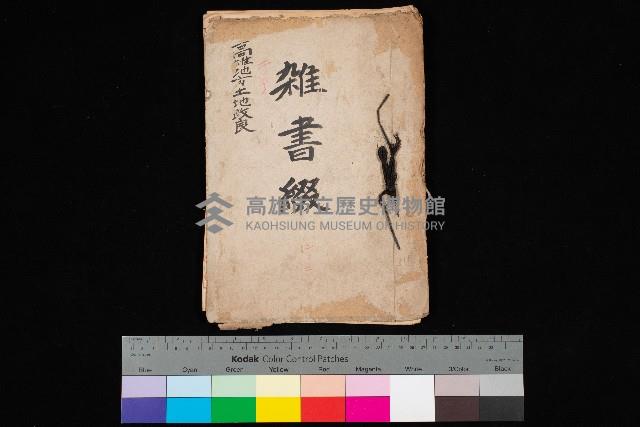 高雄地方土地改良
雑書綴
高雄市立歷史博物館
KAOHSIUNG MUSEUM OF HISTORY
Kodak Color Control Patches
Blue Cyan Green Yellow Red Magenta White 3/Color Black